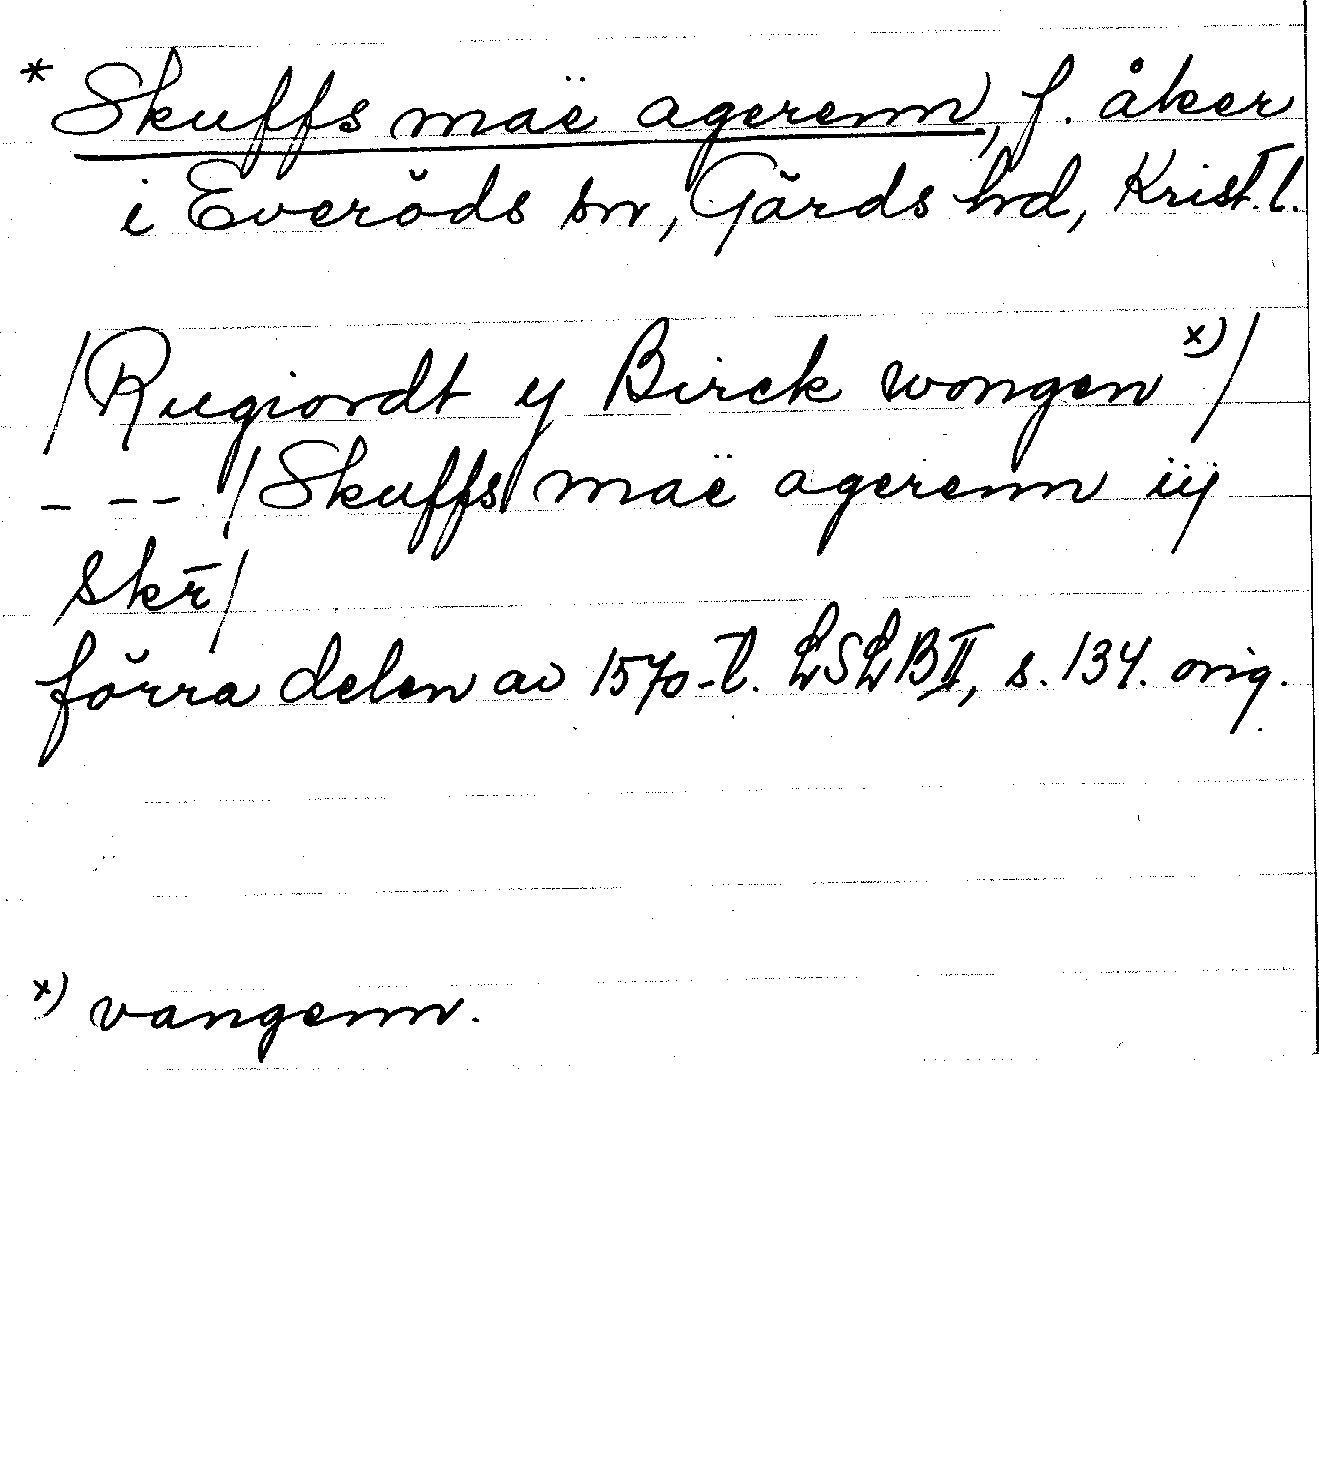 * Skuffs maë agerenn, f. åker
i Everöds sn, Gärds hd, Krist. l.
/Rugiordt y Birck wongen x)/
- - - /Skuffs maë agerenn iij
skr̄/
förra delen av 1570-t. LSLB II, s. 134. orig.
x) vangenn.